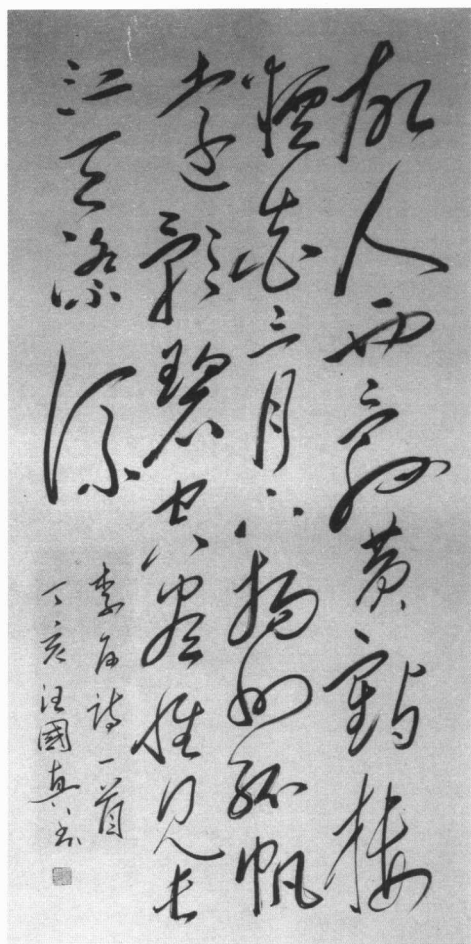 故人西辭黃鶴樓
煙花三月下揚州孤帆
遠影碧空盡惟見長
江天際流
李白詩一首
丁亥汪國真書